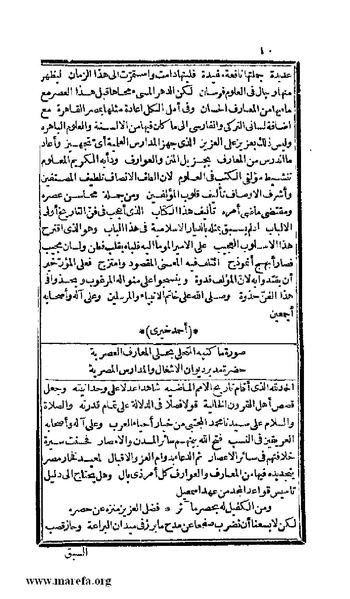 ١٠
عديدة جملتها نافعة مفيدة فليتهادامت واستمرت الى هذا الزمان ليظهر
منها رجال فى العلوم فرسان ولكن الدهر المسىء محاها قبل هذا العصر مع
مابها من المعارف الحسان وفى أملى الكل اعادة مثلها بمصر القاهرة مع
اضافة لسانى التركى والفارسى الى ما كان فيها من الالسنة والعلوم الباهره
وليس ذلك بعزيز على العزيز الذى جهز المدارس العلمية أى تجهيز وأعاد
ما اندرس من المعارف بجزيل المنن والعوارف ودأبه الكريم المعلوم
تنشيط مؤلفى الكتب فى العلوم لان ألطف الاتصاف تلطيف المصنفين
وأشرف الاوصاف تأليف قلوب المؤلفين ومن جملة محاسن عصره
ومقتضى ماضى أمره تأليف هذا الكتاب الذى يعجب فى فن التاريخ أولى
الالباب اذ لم يسبق بمثله باخبار الاسلامية فى هذا الباب وهو الذى اقترح
هذا الاسلوب العجيب على الامير الموما اليه فلباه بقلب فطن ولسان مجيب
فصار أبهج أنموذج ائتلف فيه المعنى المقصود وامتزج فعلى المؤرخين
أن يقتدوا به لان المؤلف قدوة وينسجوا على منواله المرغوب ويحذوا فى
هذا الفن حذوة وصلى الله على خاتم الانبياء والمرسلين وعلى آله وأصحابه
أجمعين
*(أحمد خيرى)*
صورة ما كتبه المتحلى بحلى المعارف العصرية
حضرة مدير ديوان الاشغال والمدارس المصرية
الحمد لله الذى أقام تاريخ الامم الماضية شاهدا عدلا على وحدانيته وجعل
قصص أهل القرون الخالية قولا فصلا فى الدلالة على تمام قدرته والصلاة
والسلام على سيدنا محمد المجتبى من خيار أحياء العرب وعلى آله وأصحابه
العريقين فى النسب فتح الله بهم سائر المدن والامصار فحسنت سيرة
خلافتهم فى سائر الاعصار ثم الدعاء بدوام العز والاقبال لعيد فخار مصر
بتجديده فيها من المعارف والعوارف كل أمر ذى بال وهل يحتاج الى دليل
تأسيس قواعد المجد من عهد اسمعيل
ومن الكفيل له بحصر مآثر * فضل العزيز منزه عن حصره
لكن لا يسعنا أن نضرب صفحا عن مدح ما برز فى ميدان البراعة وحاز قصب
السبق
www.marefa.org